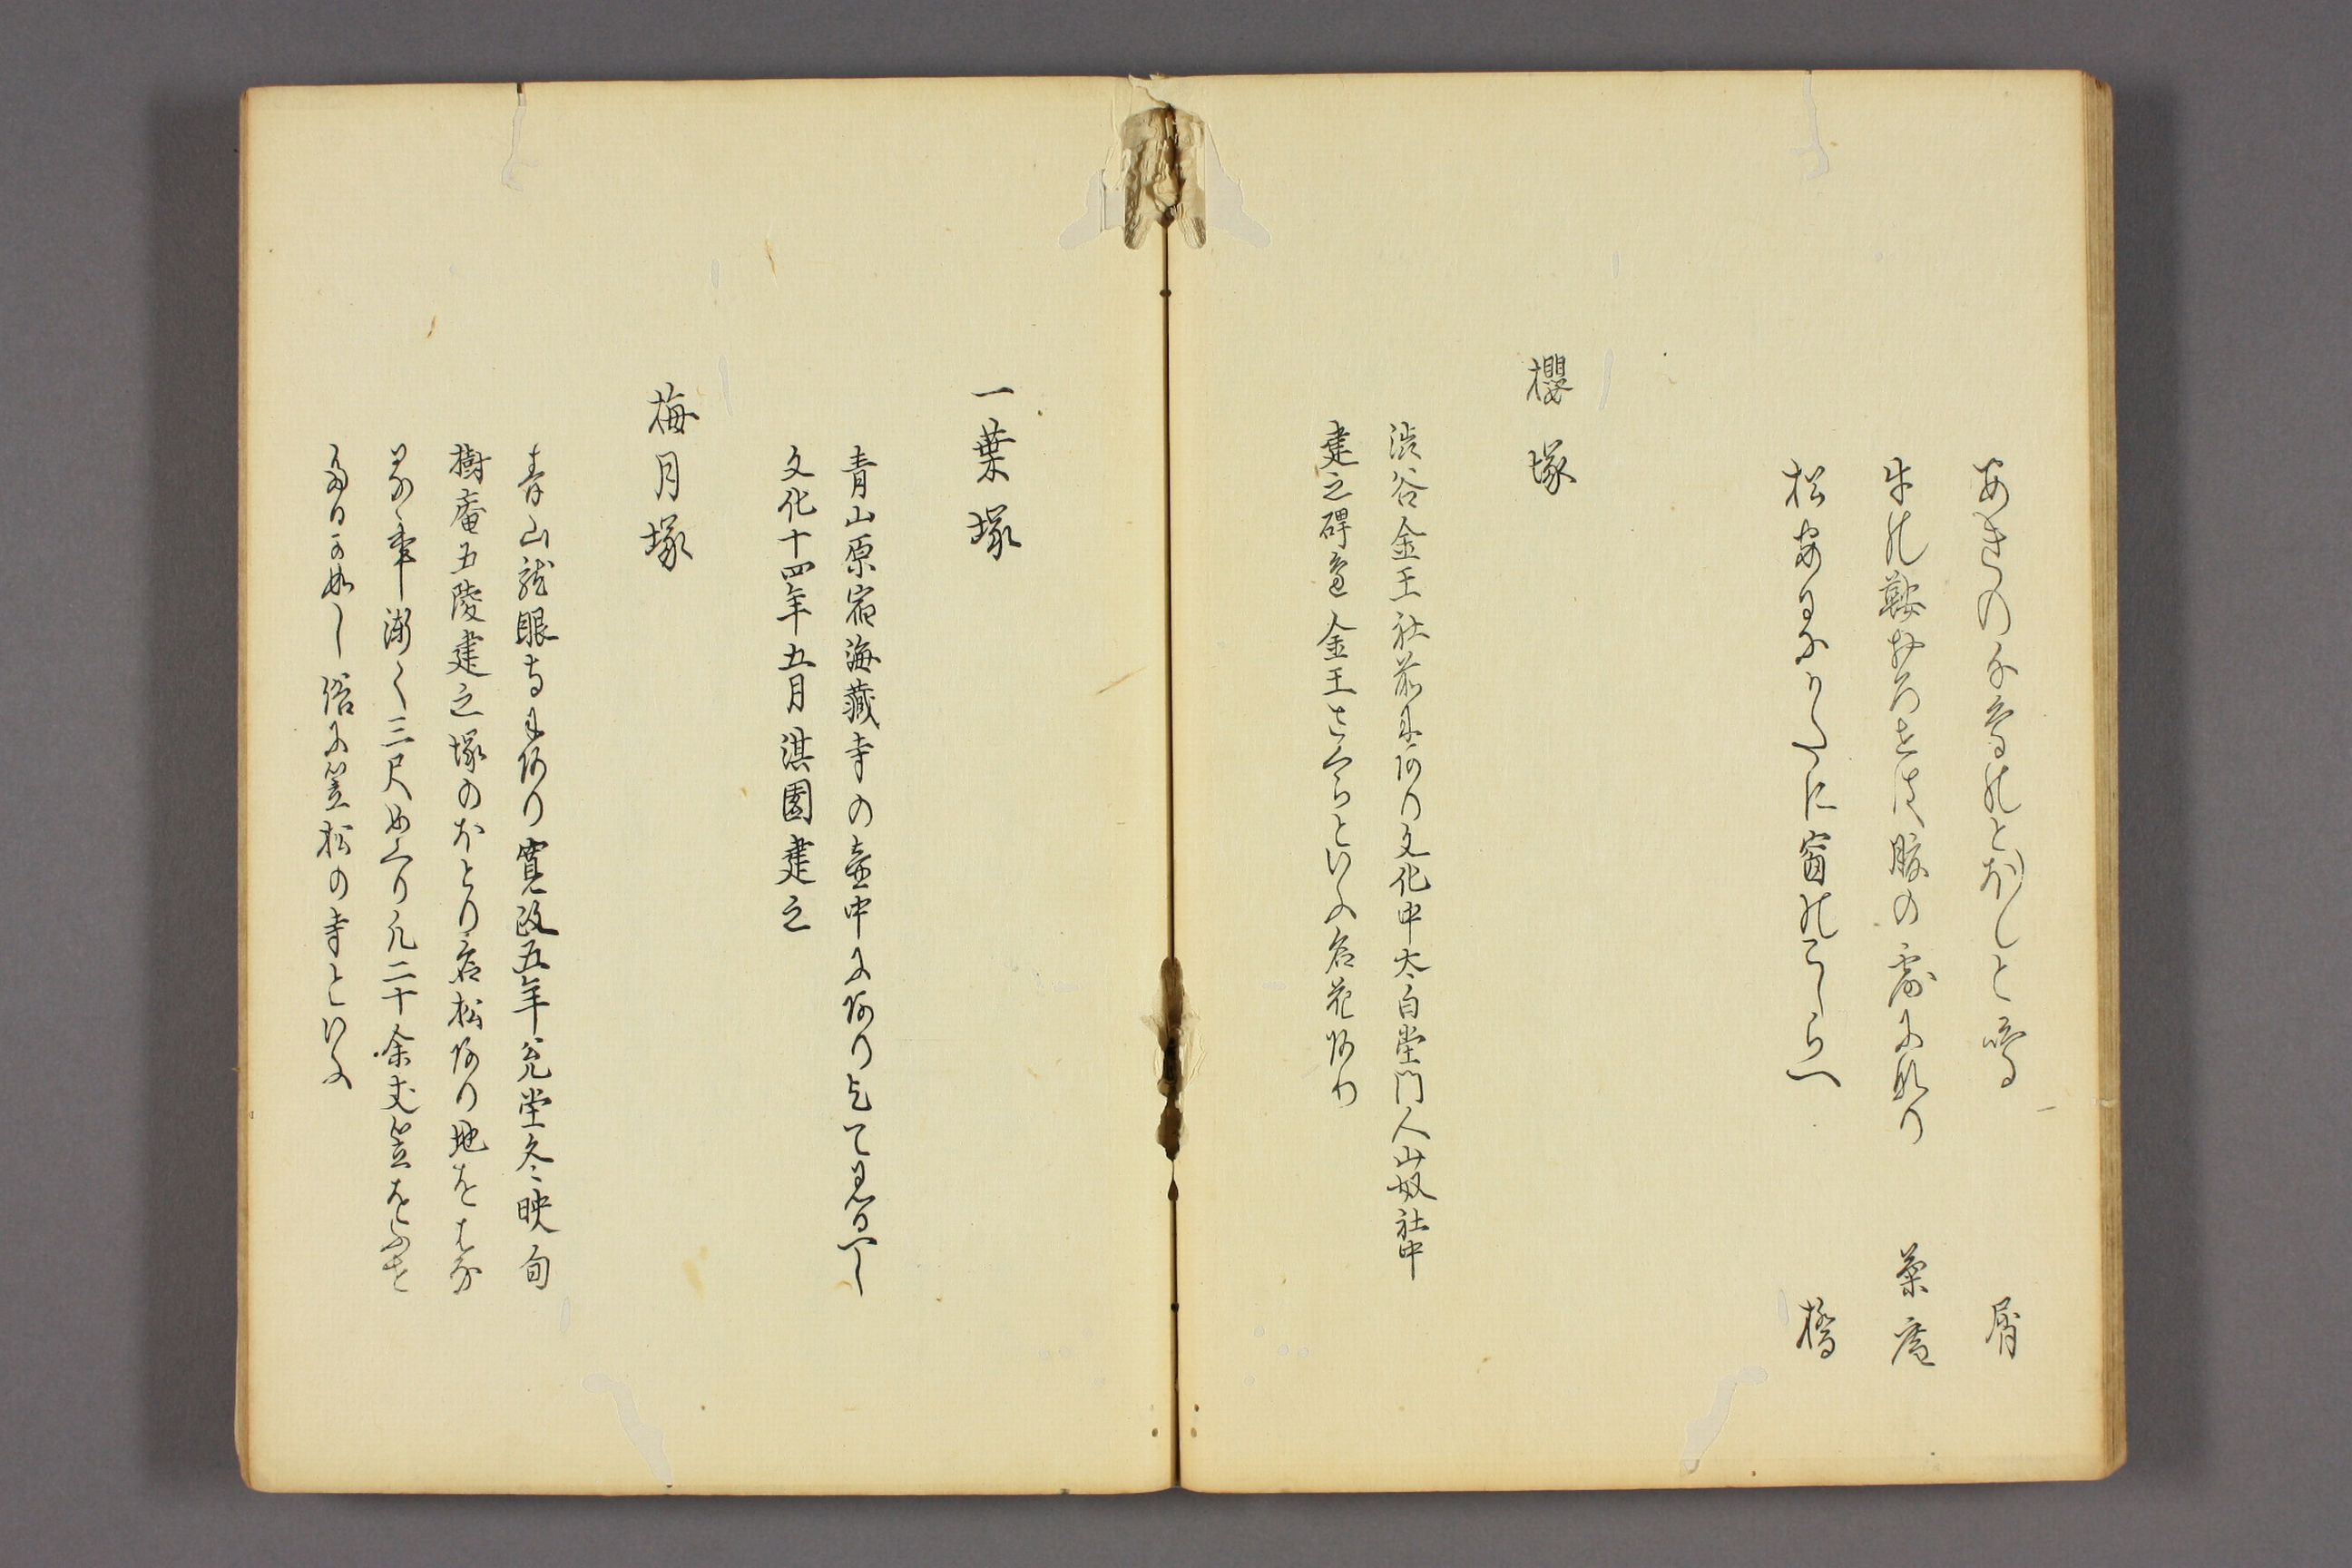 あきの千鳥のとほしと鳴　屑
牛の鞍おろせは豚の霜に成り　菊庵
松葉かたに窗のこしらへ　橋
櫻塚
渋谷金王社前にあり文化中太白堂門人山奴社中
建之碑邉金王さくらといふ名花あり
一葉塚
青山原宿海藏寺の壺中にありとて見るへし
文化十四年五月淇園建之
梅月塚
青山龍眼寺にあり寛政五年兌堂冬映旬
樹庵五陵建之塚のほとり名松あり地をはな
るゝ事漸く三尺めくり凡二十余丈笠をふせ
たるか如し俗に笠松の寺といふ